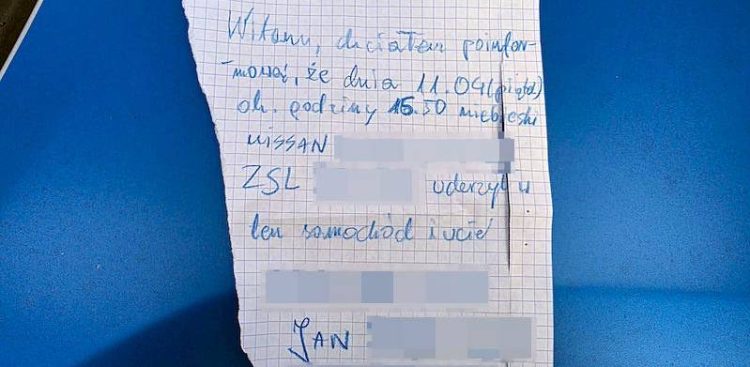 Witam, chciałem poinfor-
-mować, że dnia 11.09 (piątek)
ok. godziny 16.50 niebieski
NISSAN
ZSL uderzył w
ten samochód i uciekł
JAN